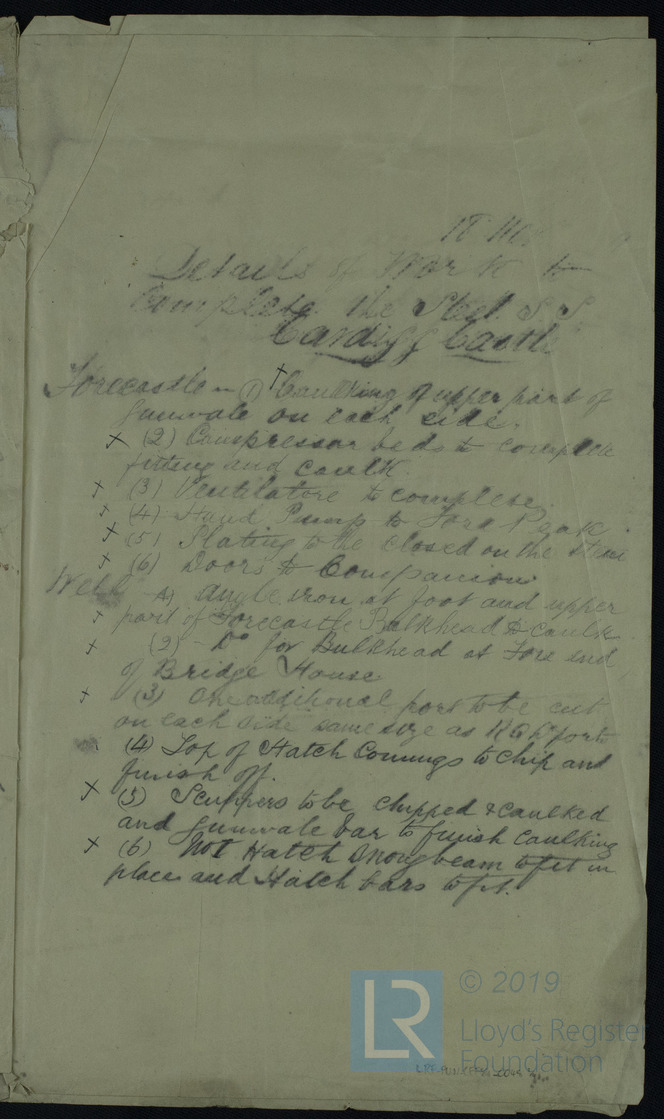 Details of Work to
Complete the Steel S.S
Cardiff Castle
Forecastle — (1) Caulking of upper part of
gunwale on each side.
x (2) Compressor beds to complete
fitting and caulk.
x (3) Ventilators to complete
x (4) Hand Pump to Fore Peak
x (5) Plating to be closed on the Stem
x (6) Doors to Companion
Well (1) angle iron at foot and upper
x part of Forecastle Bulkhead to caulk
x (2) - Do for Bulkhead at Fore end
of Bridge House
x (3) One additional port to be cut
on each side same size as port
(4) Top of Hatch Comings to chip and
finish off.
x (5) Scuppers to be chipped & caulked
and gunwale bar to finish caulking
x (6) Hatch beam to fit in
place and Hatch bars to fit.
LR
© 2019
Lloyd's Register
Foundation